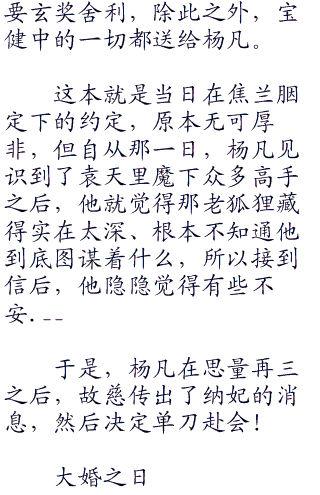 要玄奘舍利，除此之外，宝
健中的一切都送给杨凡。
这本就是当日在焦兰胭
定下的约定，原本无可厚
非，但自从那一日，杨凡见
识到了袁天里魔下众多高手
之后，他就觉得那老狐狸藏
得实在太深、根本不知通他
到底图谋着什么，所以接到
信后，他隐隐觉得有些不
安.--
于是，杨凡在思量再三
之后，故慈传出了纳妃的消
息，然后决定单刀赴会！
大婚之日